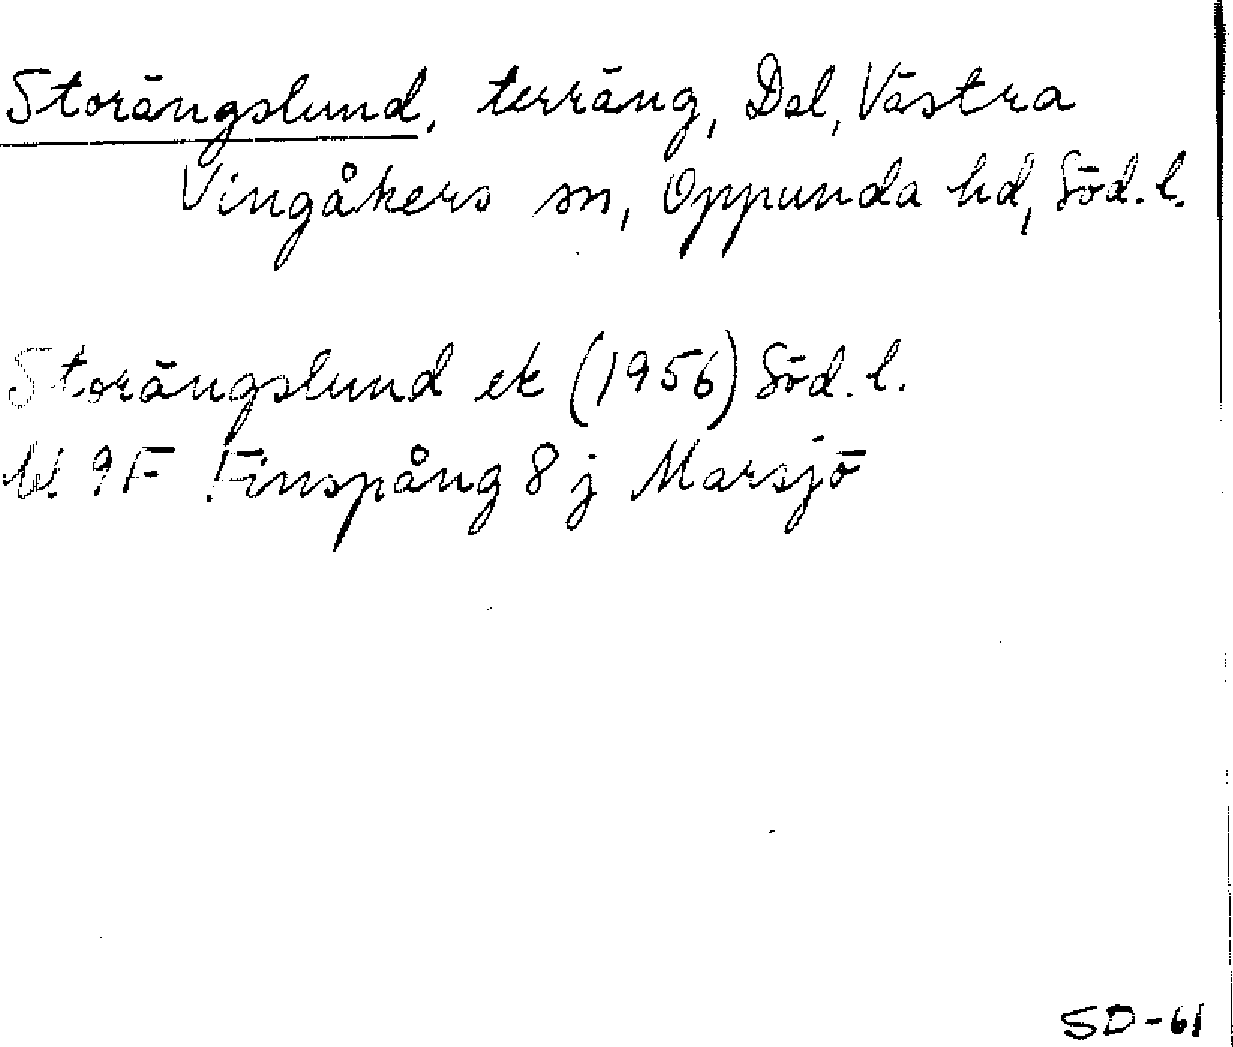 Storängslund, terräng, Dal, Västra
Vingåkers sn, Oppunda hd, Söd. l.
Storängslund ek (1956) Söd. l.
bl. 9F Finspång 8 j Marsjö
SD-61